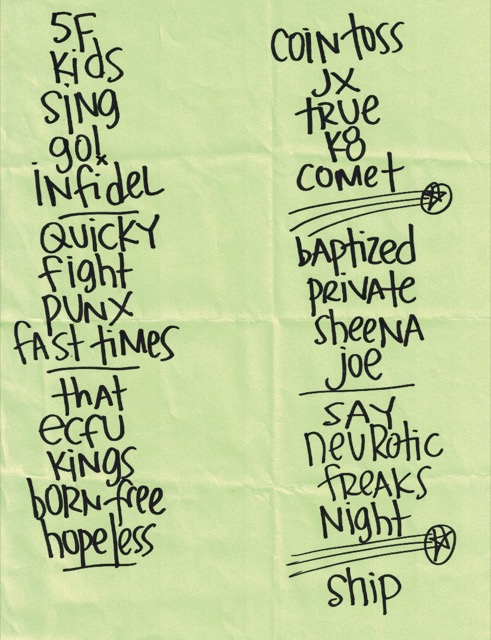 5F
Kids
SiNg
go!
iNfidEL
QUicKY
fight
PUNX
fAst tiMES
thAt
ecfU
KiNgs
bORN-free
hopeless
COiN toss
JX
tRUE
K8
COMet
bAptized
PRiVAte
SheeNA
joe
SAY
NeURotic
fReAKs
Night
ship